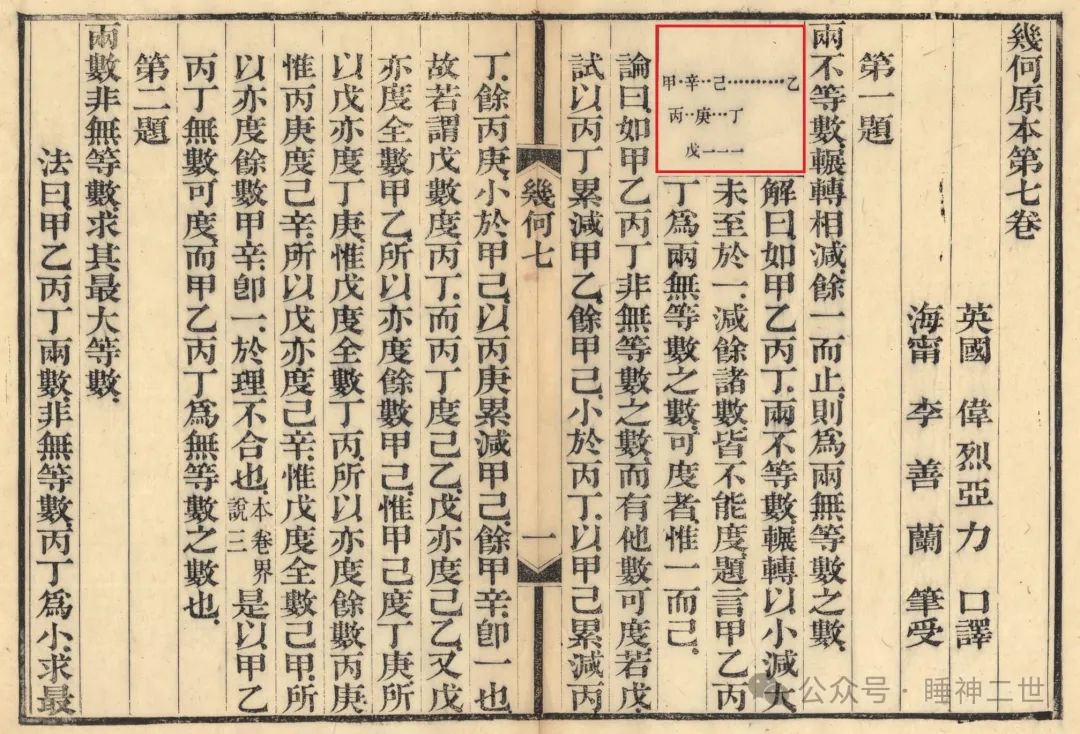 幾何原本第七卷
英國 偉烈亞力 口譯
海甯 李善蘭 筆受
第一題
兩不等數、輾轉相減、餘一而止、則爲兩無等數之數、
解曰、如甲乙丙丁、兩不等數、輾轉以小減大
未至於一、減餘諸數、皆不能度、題言甲乙丙
丁爲兩無等數之數、可度者、惟一而已、
甲·辛··己··········乙
丙··庚···丁
戊一一一
論曰、如甲乙丙丁非無等數之數、而有他數可度、若戊、
試以丙丁累減甲乙、餘甲己、小於丙丁、以甲己累減丙
幾何七
一
丁、餘丙庚、小於甲己、以丙庚累減甲己、餘甲辛、即一也
故若謂戊數度丙丁、而丙丁度己乙、戊亦度己乙、又戊
亦度全數甲乙、所以亦度餘數甲己、惟甲己度丁庚、所
以戊亦度丁庚、惟戊度全數丁丙、所以亦度餘數丙庚
惟丙庚度己辛、所以戊亦度己辛、惟戊度全數己甲、所
以亦度餘數甲辛、即一、於理不合也本卷界說三是以甲乙
丙丁無數可度、而甲乙丙丁爲無等數之數也、
第二題
兩數非無等數、求其最大等數、
法曰、甲乙丙丁兩數、非無等數、丙丁爲小、求最
公众号·睡神二世